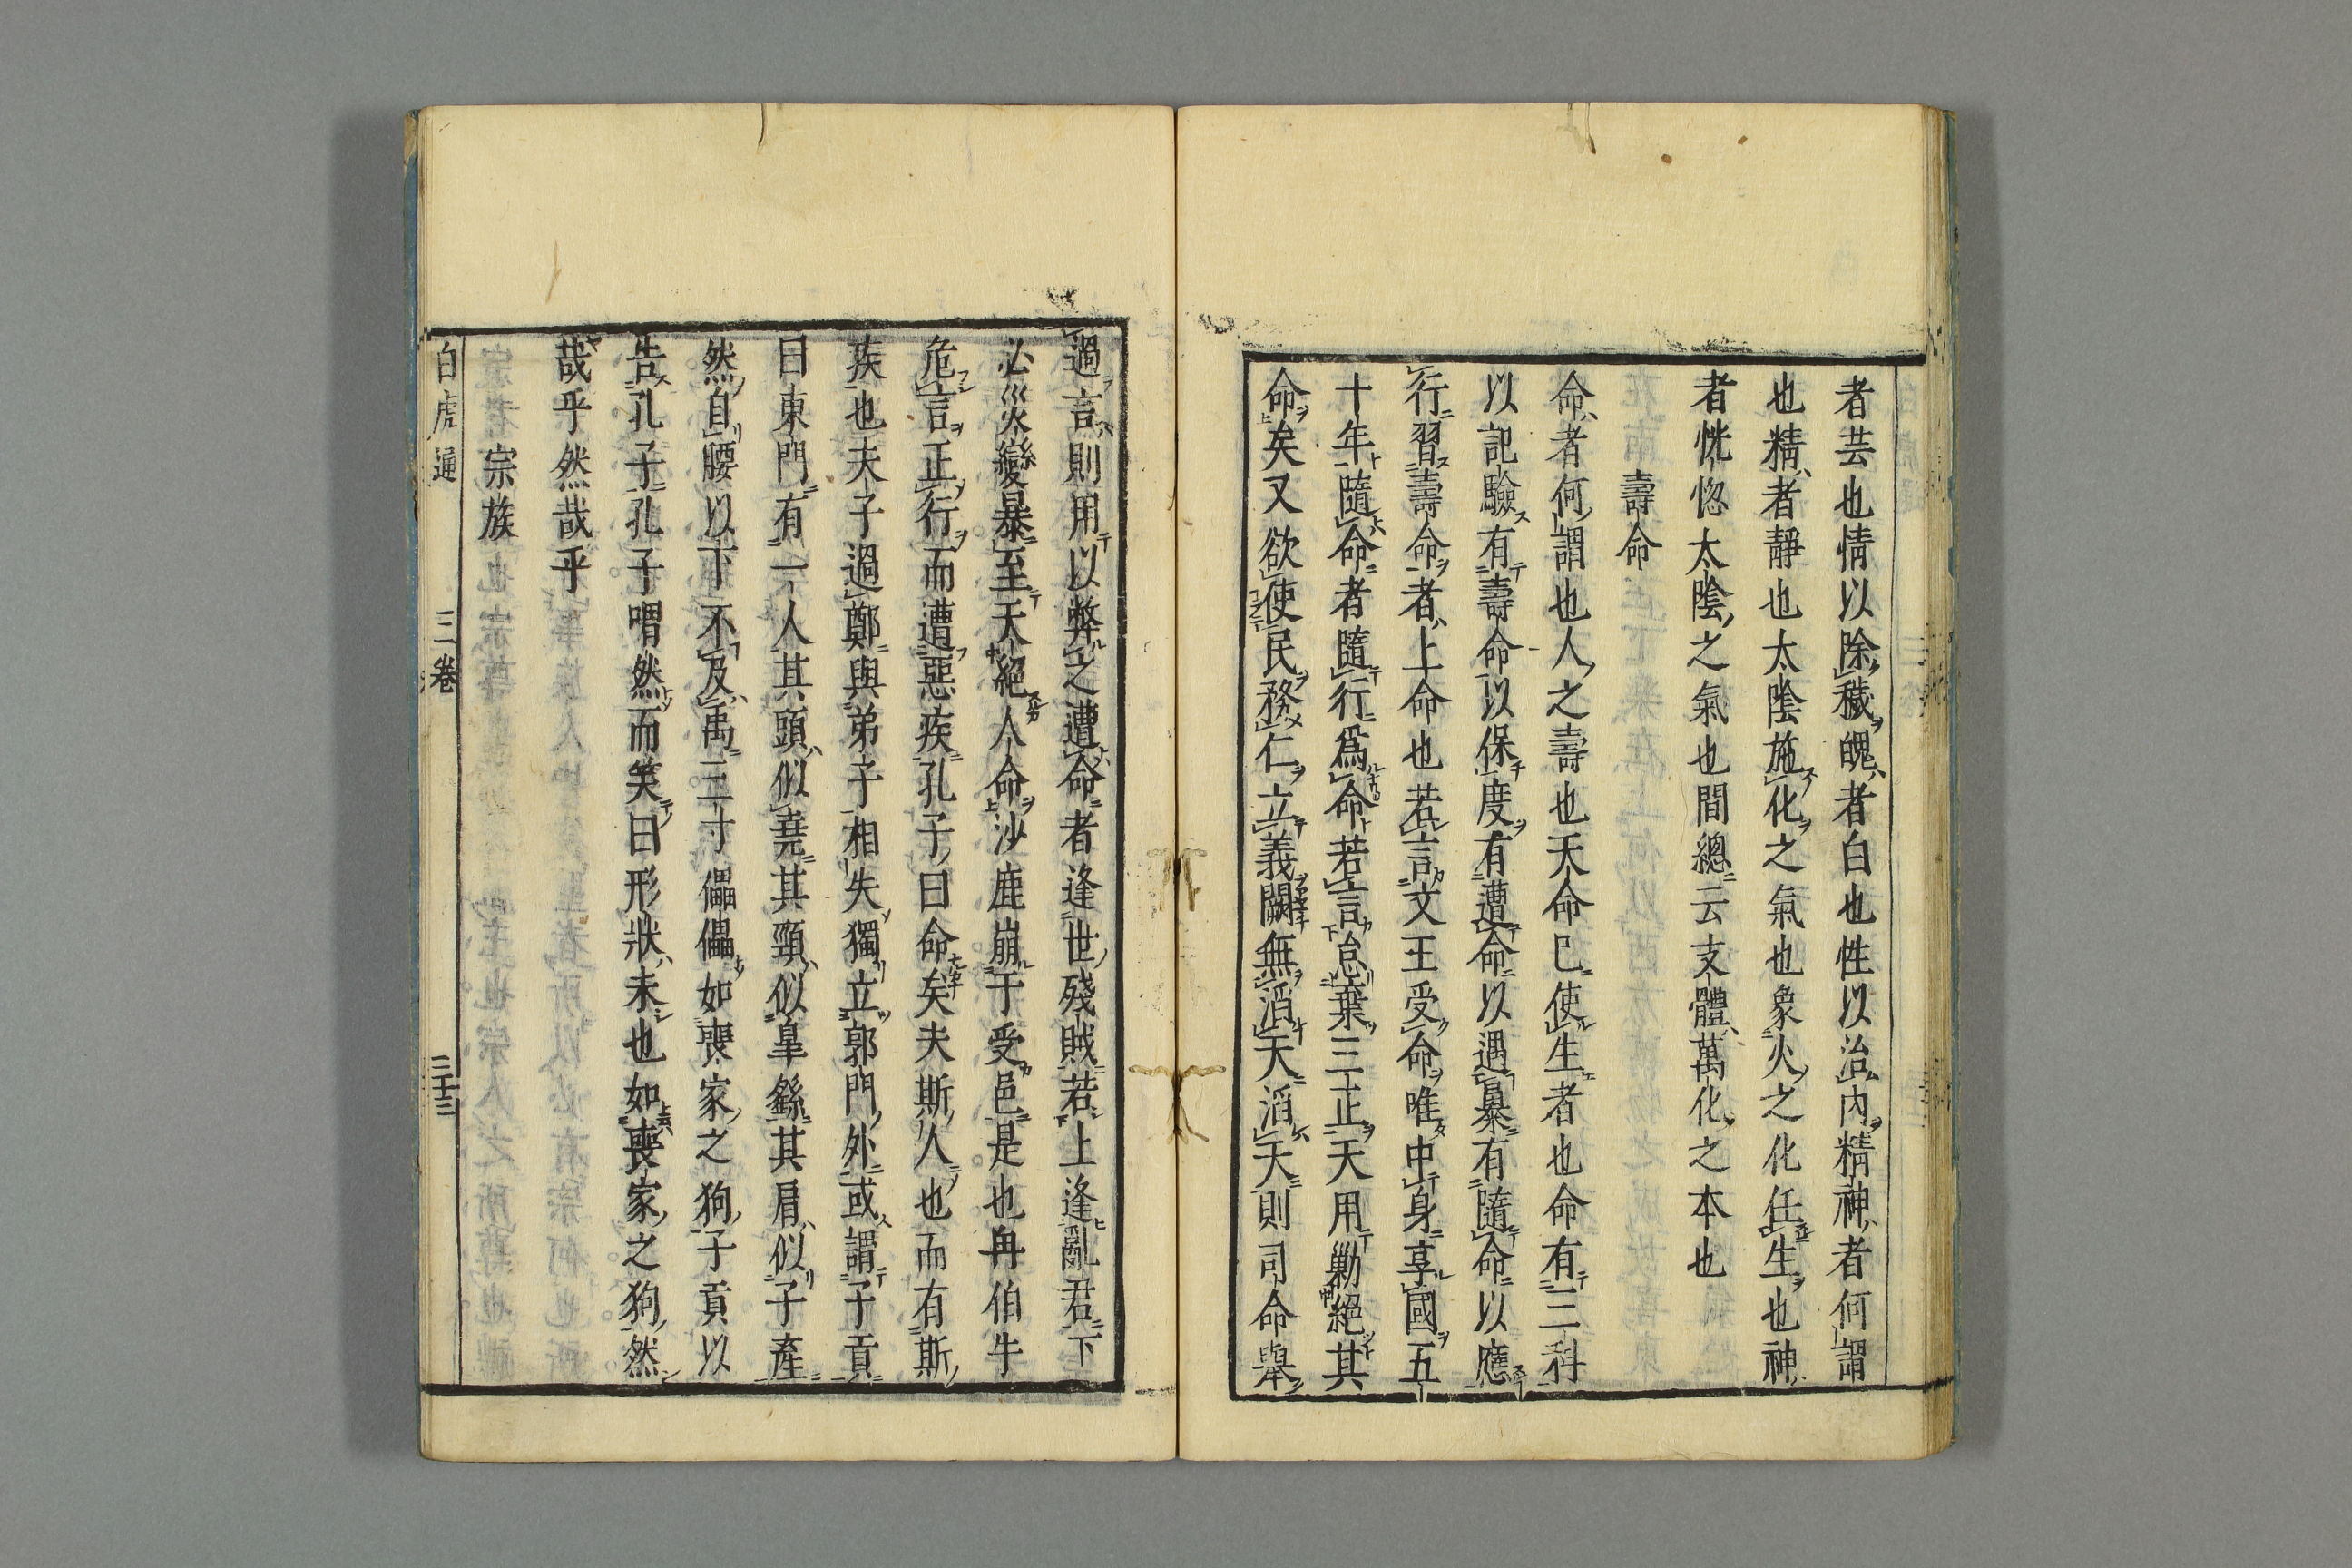 者芸也情以除穢魄者白也性以治內精神者何謂
也精者靜也太陰施化之氣也象火之化任生也神
者恍惚太陰之氣也間總云支體萬化之本也
壽命
命者何謂也人之壽也天命巳使生者也命有三科
以記驗有壽命以保度有遭命以遇暴有隨命以應
行習壽命者上命也若言文王受命唯中身享國五
十年隨命者隨行爲命若言怠棄三正天用勦絕其
命矣又欲使民務仁立義闕無滔天滔天則司命舉
過言則用以弊之遭命者逢世殘賊若上逢亂君下
必災變暴至夭絕人命沙鹿崩于受邑是也冉伯牛
危言正行而遭惡疾孔子曰命矣夫斯人也而有斯
疾也夫子過鄭與弟子相失獨立郭門外或謂子貢
曰東門有一人其頭似堯其頸似皐繇其肩似子產
然自腰以下不及禹三寸儡儡如喪家之狗子貢以
告孔子孔子喟然而笑曰形狀未也如喪家之狗然
哉乎然哉乎
宗族
白虎通 三卷 三十三